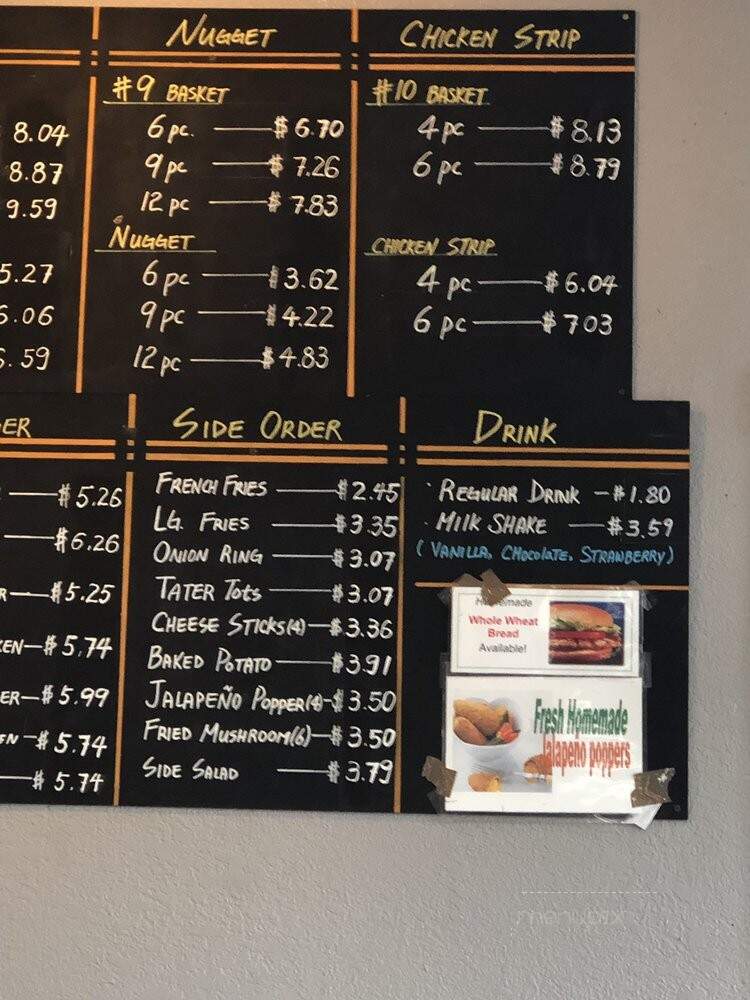 8.04
8.87
9.59
5.27
6.06
6.59
NUGGET
#9 BASKET
6 pc. $6.70
9 pc $7.26
12 pc $7.83
NUGGET
6 pc $3.62
9 pc $4.22
12 pc $4.83
CHICKEN STRIP
#10 BASKET
4 pc $8.13
6 pc $8.79
CHICKEN STRIP
4 pc $6.04
6 pc $703
ER
$5.26
$6.26
R $5.25
KEN $5.74
ER $5.99
EN $5.74
$5.74
SIDE ORDER
FRENCH FRIES $2.45
LG. FRIES $3.35
ONION RING $3.07
TATER TOTS $3.07
CHEESE STICKS(4) $3.36
BAKED POTATO $3.91
JALAPEÑO POPPER(4) $3.50
FRIED MUSHROOM(6) $3.50
SIDE SALAD $3.79
DRINK
· REGULAR DRINK $1.80
· MILK SHAKE $3.59
(VANILLA, CHOCOLATE, STRAWBERRY)
Homemade
Whole Wheat
Bread
Available!
Fresh Homemade
Jalapeno poppers
menupix